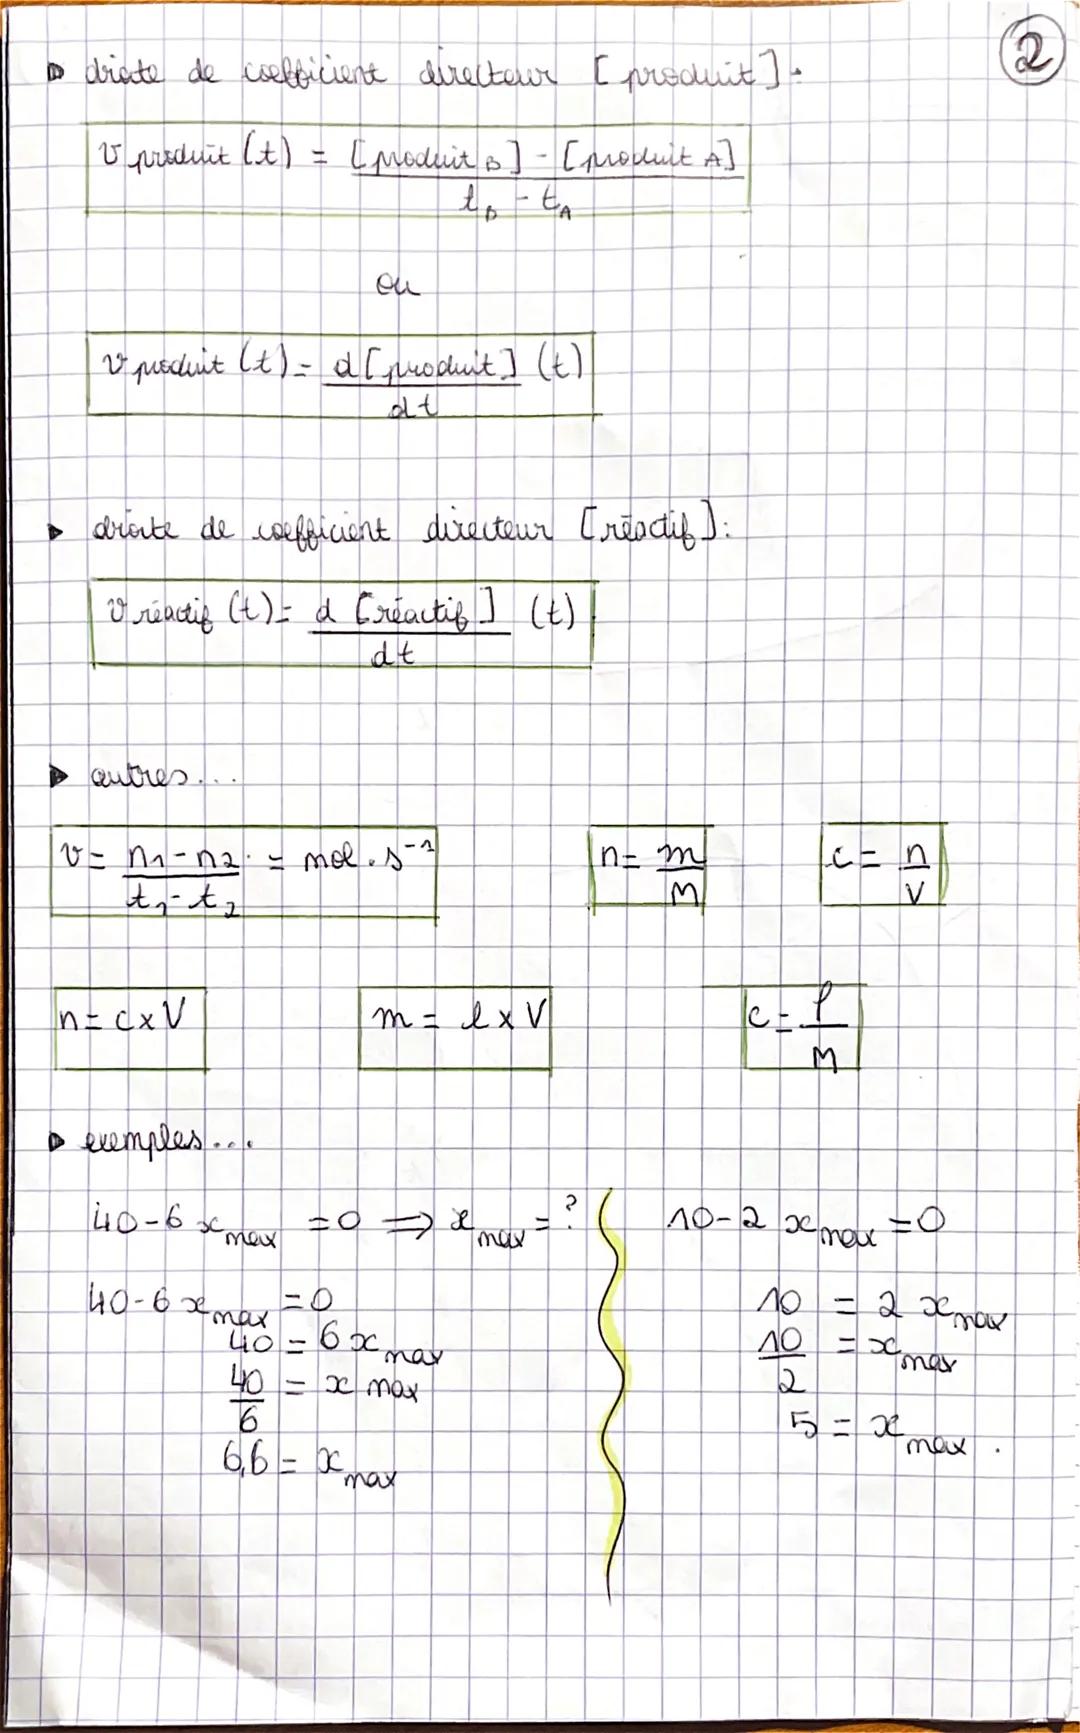 ②
▶ droite de coefficient directeur [produit].
v produit (t) = [produit B] - [produit A] / tB - tA
ou
v produit (t) = d[produit] / dt (t)
▶ droite de coefficient directeur [réactif]:
v réactif (t) = d [réactif] / dt (t)
▶ autres...
v = n1 - n2 / t1 - t2 = mol.s⁻¹
n = m / M
c = n / V
n = c x V
m = ρ x V
c = ρ / M
▶ exemples...
40-6 x max = 0 ⇒ x max = ?
40-6 x max = 0
40 = 6 x max
40 / 6 = x max
6,6 = x max
10-2 x max = 0
10 = 2 x max
10 / 2 = x max
5 = x max.